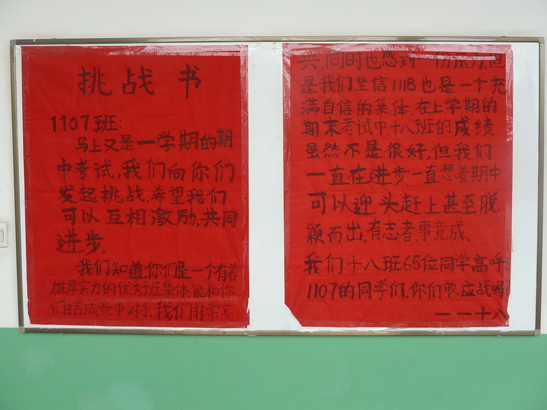 挑战书
1107班:
马上又是一学期的期
中考试,我们向你们
发起挑战,希望我们
可以互相激励,共同
进步。
我们知道你们是一个有着
雄厚实力的优秀班集体,能和你
们结成竞争对手,我们非常高
共,同时也感到一份压力,但
是我们坚信1118也是一个充
满自信的集体,在上学期的
期末考试中十八班的成绩
虽然不是很好,但我们
一直在进步一直想着期中
可以迎头赶上甚至脱
颖而出,有志者,事竟成。
我们十八班65位同学高呼:
1107的同学们,你们敢应战吗?
一一十八